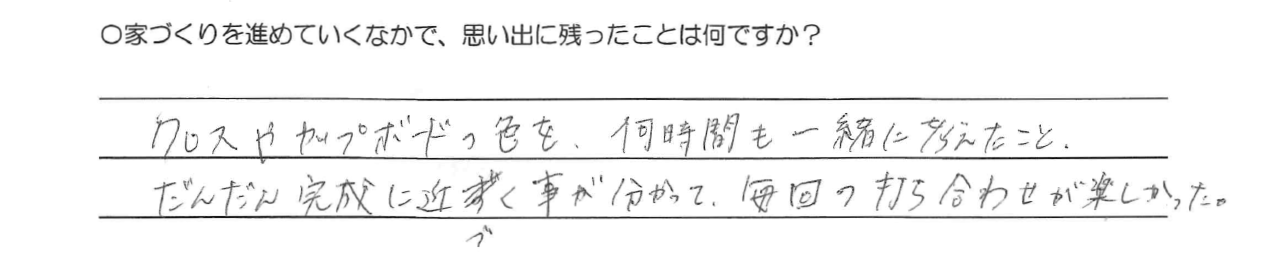 ○家づくりを進めていくなかで、思い出に残ったことは何ですか？
クロスやカップボードの色を、何時間も一緒に考えたこと.
だんだん完成に近づく事が分かって、毎回の打ち合わせが楽しかった。